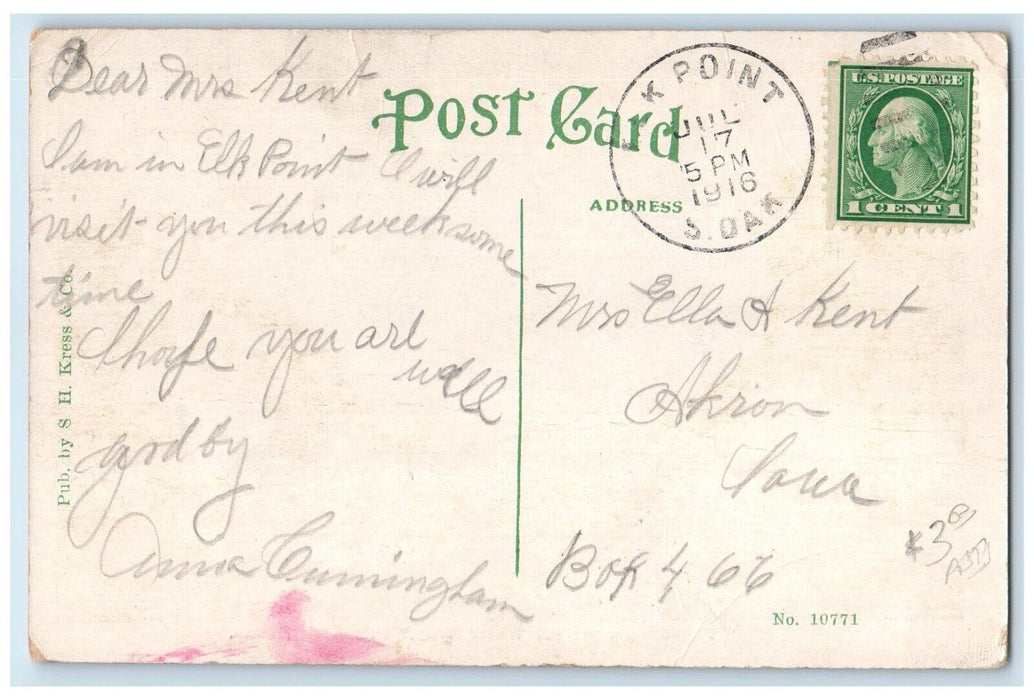 Dear Mrs Kent
I am in Elk Point I will
visit you this week some
time
I hope you are
well
godby
Anna Cunningham
Pub. by S. H. Kress & Co.
Post Card
ADDRESS
K POINT
JUL
17
5 PM
1916
S. DAK
U.S. POSTAGE
1 CENT 1
Mrs Ella A Kent
Akron
Iowa
Box 466
No. 10771